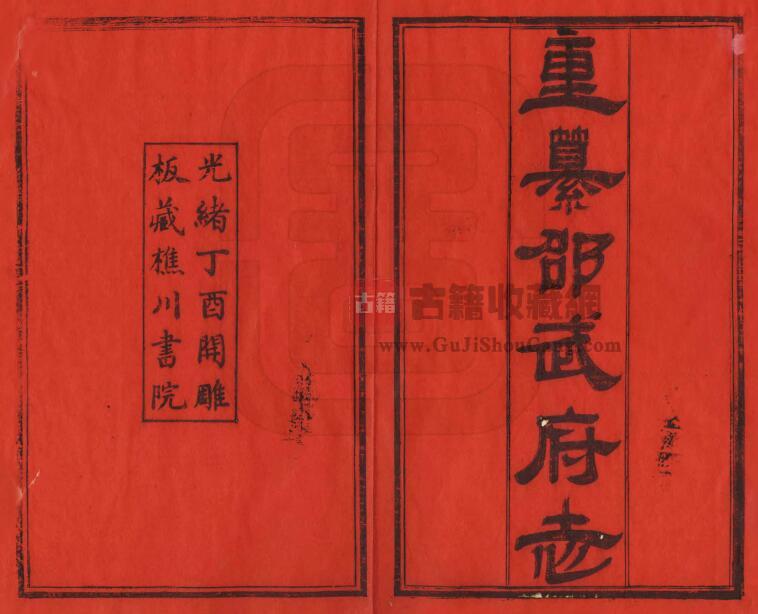 重纂邵武府志
光緒丁酉開雕
板藏樵川書院
古籍
古籍收藏網
www.GuJiShouCang.com